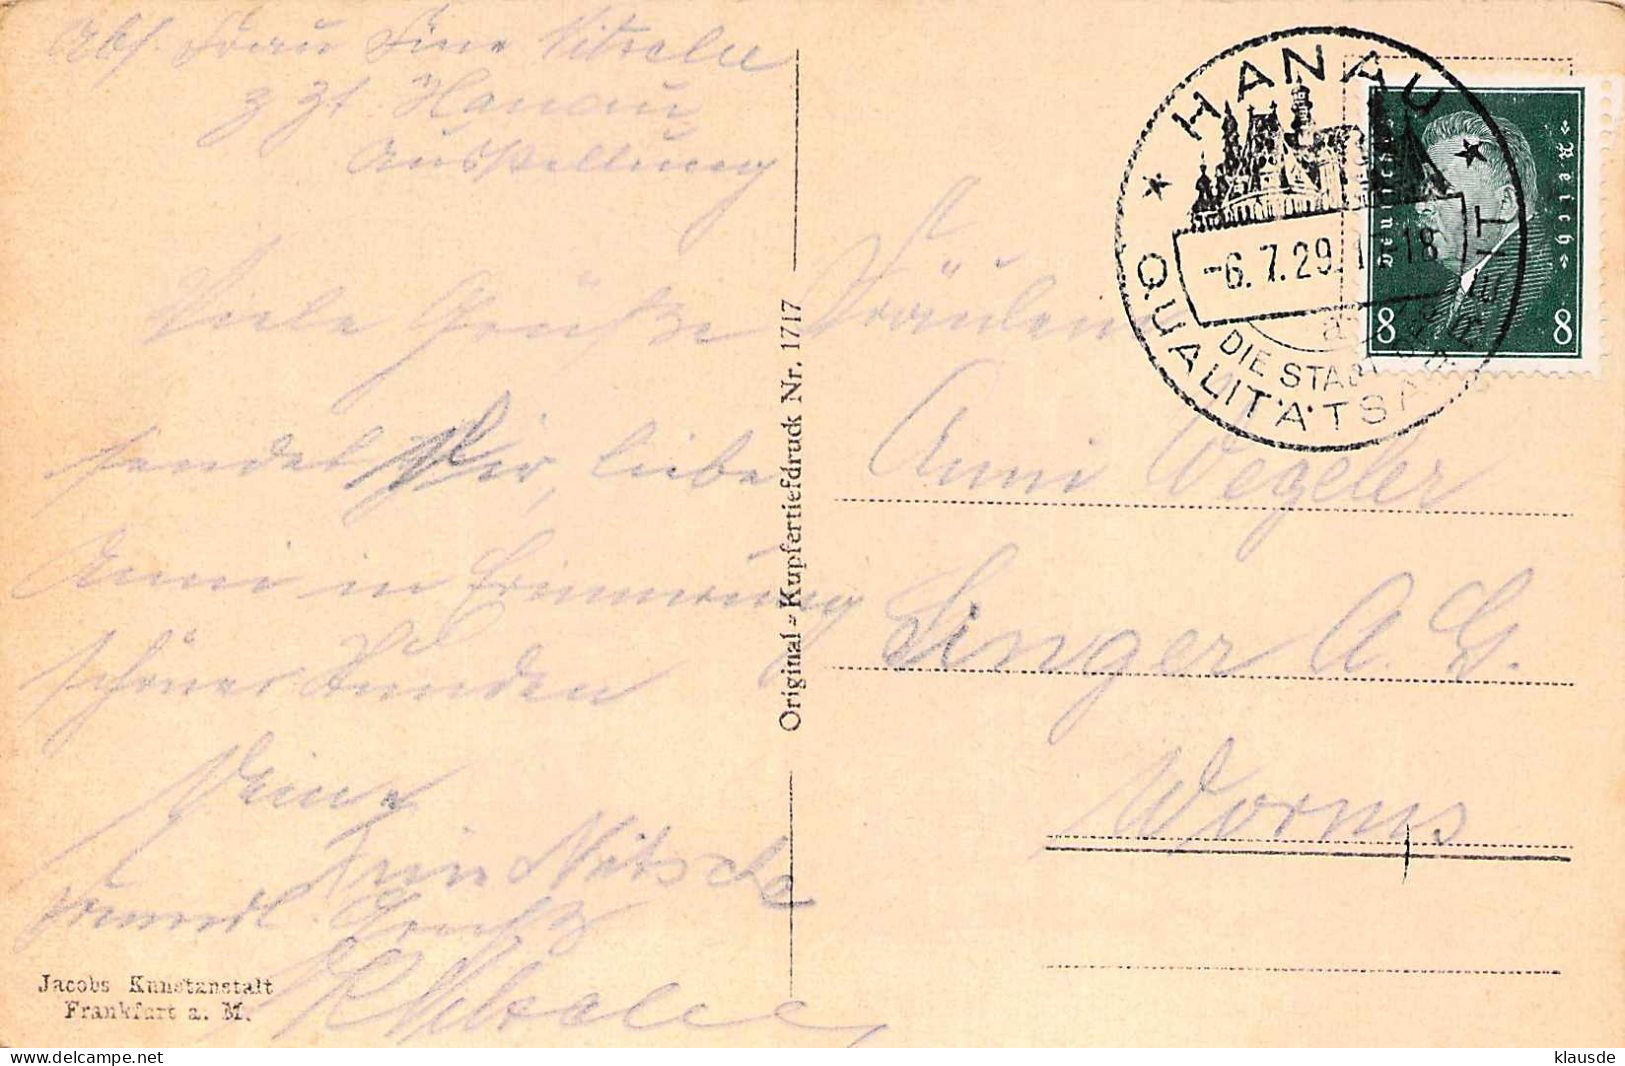 Abs. Frau Fine Nitzsche
z Zt Hanau
Ausstellung
Viele Grüße
sendet Dir, liebe
Anni in Erinnerung
schöner Stunden
Deine
Nitzsche
freundl. Gruß
Jacobs Kunstanstalt
Frankfurt a. M.
Original-Kupfertiefdruck Nr. 1717
HANAU
-6.7.29.
18
DIE STADT
QUALITÄTSARBEIT
Deutsches Reich
8 8
Fräulein
Anni Wegeler
Singer A. G.
Worms
klausde